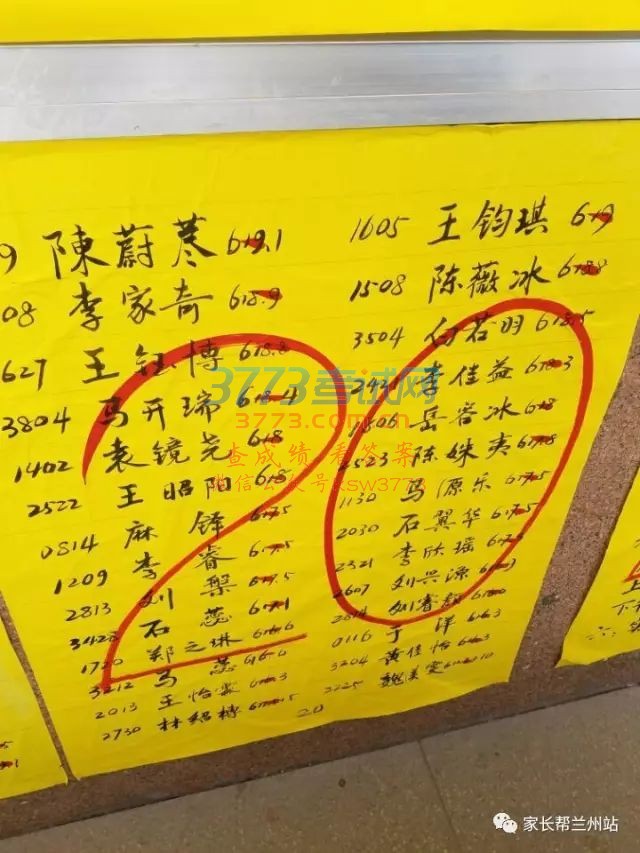 9 陳蔚荩 619.1
08 李家奇 618.9
627 王钰博 618.8
3804 马开瑞 618.4
1402 袁镜尧 618
2522 王昭阳 618
0814 麻铎 617.5
1209 李睿 617.5
2813 刘琛 617.5
3428 石蕊 617.1
1720 郑之琳 616.6
3212 马蕊 616.6
2013 王怡霖
2730 林绍博
1605 王钧琪 619
1508 陈薇冰 618.8
3504 白若明 618.5
佳益 618.3
1806 岳容冰 618
2523 陈姝夷 617.8
1130 马源乐 617.5
2030 石翼华 617.5
2321 李欣瑶
2607 刘兴源
刘睿
0116 于洋 616.3
3204 黄佳怡 616.3
魏美雯
20
20
3773考试网
3773.com.cn
查成绩 看答案
微信公众号 ksw3773
家长帮兰州站